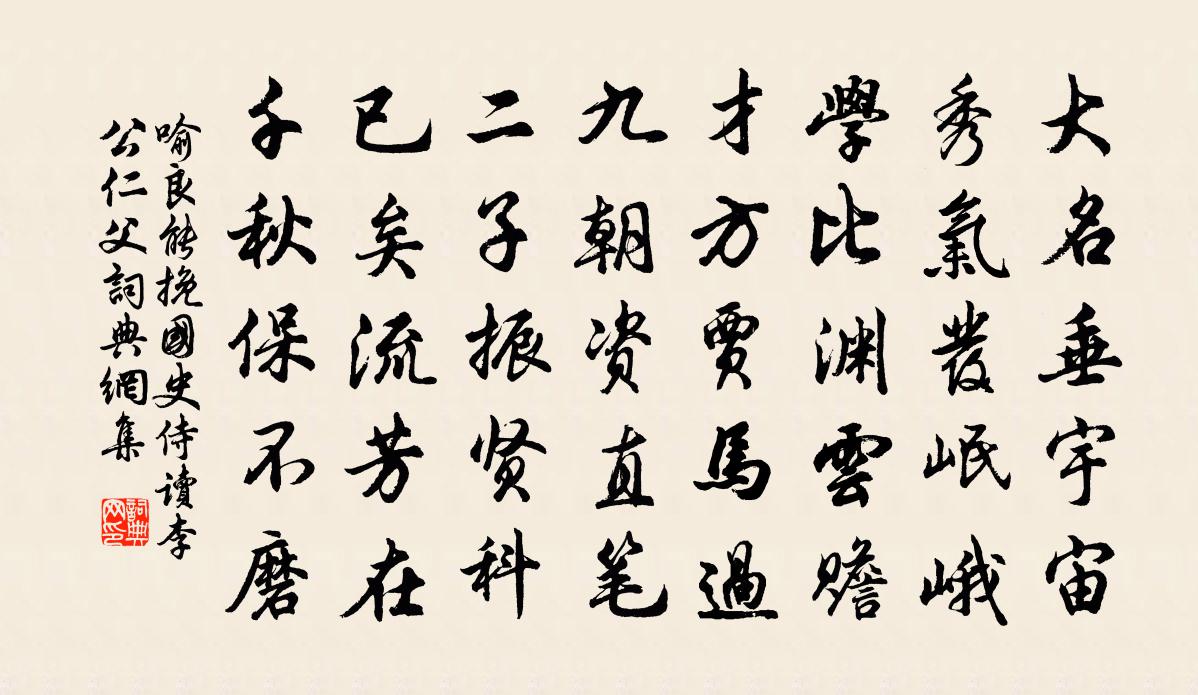 大名垂宇宙
秀氣發岷峨
學比渊雲赡
才方賈馬過
九朝資直笔
二子振贤科
已矣流芳在
千秋保不磨
喻良能挽國史侍讀李
公仁父詞典網集
詞典
网印